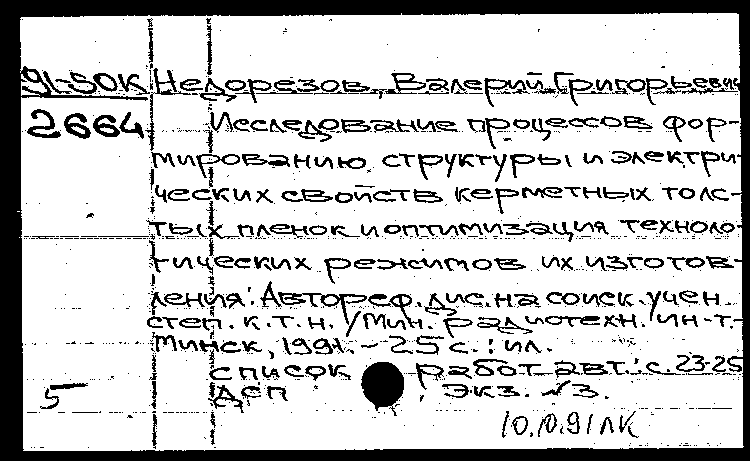 91-50К Недорезов, Валерий Григорьевич
2664 Исследование процессов фор-
мированию структуры и электри-
ческих свойств керметных толс-
тых пленок и оптимизация техноло-
гических режимов их изготов-
ления: Автореф. дис. на соиск. учен.
степ. к.т.н. /Мин. радиотехн. ин-т.-
Минск, 1991. - 25 с.: ил.
список работ авт.: с. 23-25
5 ДСП , Экз. №3.
10.10.91 ЛК